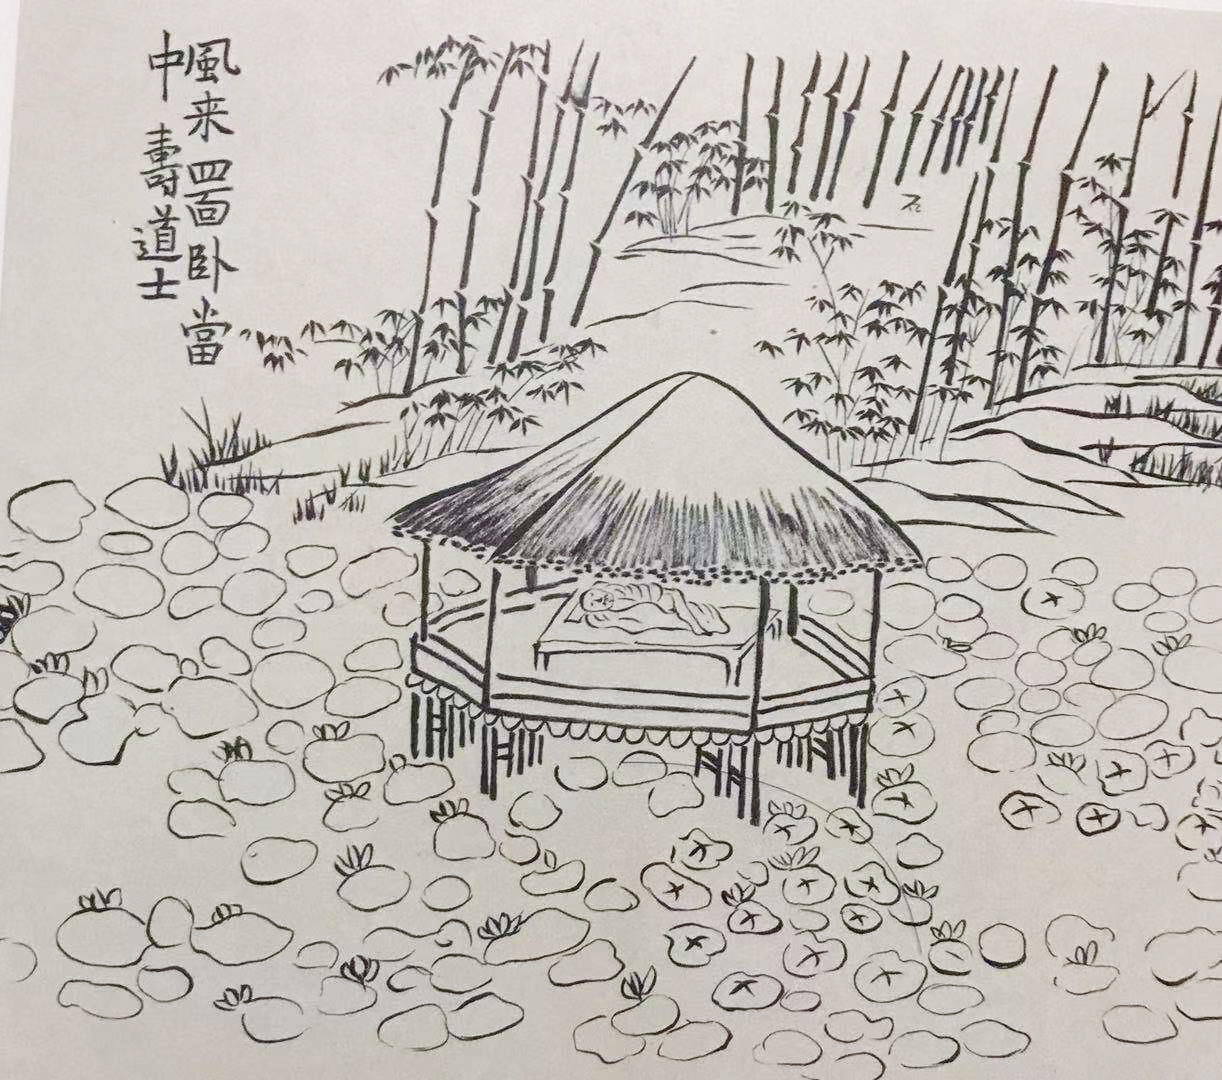 風来四面卧當
中 壽道士